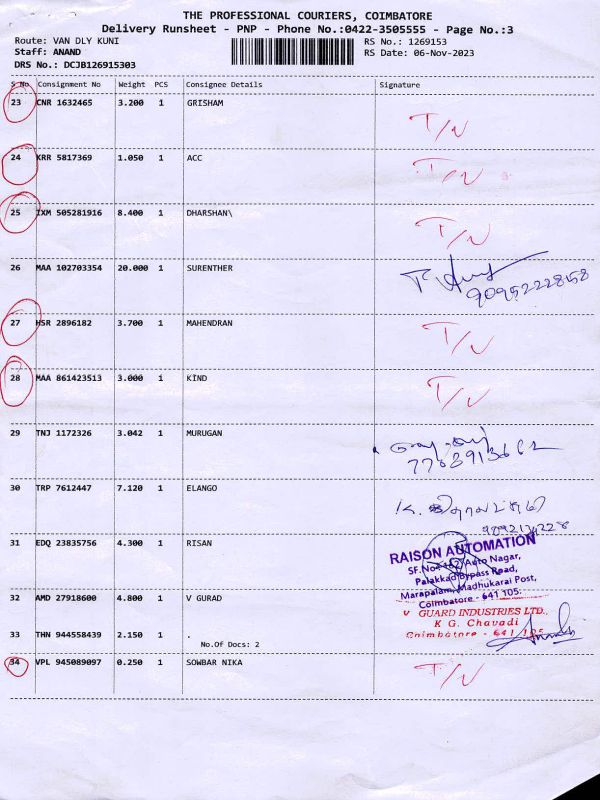 THE PROFESSIONAL COURIERS, COIMBATORE
Delivery Runsheet - PNP - Phone No.:0422-3505555 - Page No.:3
Route: VAN DLY KUNI RS No.: 1269153
Staff: ANAND RS Date: 06-Nov-2023
DRS No.: DCJB126915303
S No Consignment No Weight PCS Consignee Details Signature
23 CNR 1632465 3.200 1 GRISHAM
T/N
24 KRR 5817369 1.050 1 ACC
T/N
25 IXM 505281916 8.400 1 DHARSHAN\
T/N
26 MAA 102703354 20.000 1 SURENTHER
9095222858
27 HSR 2896182 3.700 1 MAHENDRAN
T/N
28 MAA 861423513 3.000 1 KIND
T/N
29 TNJ 1172326 3.042 1 MURUGAN
30 TRP 7612447 7.120 1 ELANGO
31 EDQ 23835756 4.300 1 RISAN
RAISON AUTOMATION
SF.No. Auto Nagar,
Palakkad Bypass Road,
Marapalam, Madhukarai Post,
Coimbatore - 641 105.
32 AMD 27918600 4.800 1 V GURAD
V GUARD INDUSTRIES LTD.,
K G. Chavadi
Coimbatore - 641 105
33 THN 944558439 2.150 1 .
No.Of Docs: 2
34 VPL 945089097 0.250 1 SOWBAR NIKA
T/N